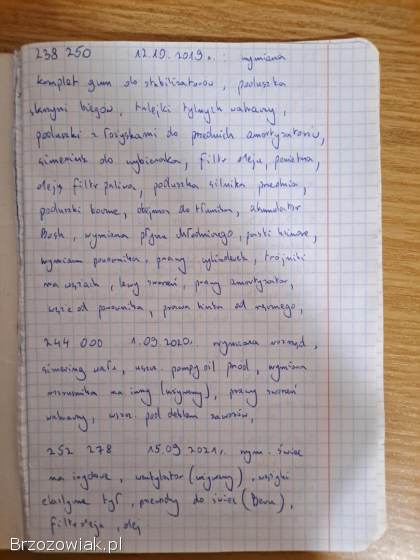 238 250 12.10.2019 r. wymiana
komplet gum do stabilizatorów, poduszka
skrzyni biegów, tulejki tylnych wahaczy,
poduszki z łożyskami do przednich amortyzatorów,
simering do wybieraka, filtr oleju, powietrza,
olej, filtr paliwa, poduszka silnika przednia,
poduszki boczne, obejma do tłumika, akumulator
Bosh, wymiana płynu chłodniczego, paski klinowe,
wymiana prawy cylinderek, trójniki
na wężach, lewy sworzeń, prawy amortyzator,
węże od parownika, prawa linka od ręcznego,
244 000 1.09.2020. wymiana rozrząd,
simering wału, uszcz. pompy oil przód, wymiana
rozrusznika na inny (używany), prawy sworzeń
wahaczy, uszcz. pod deklem zaworów,
252 278 15.09.2021. wym. świec
na irydowe, wentylator (używany), wężyki
elastyczne tył, przewody do świec (Beru),
filtr oleju, olej
Brzozowiak.pl